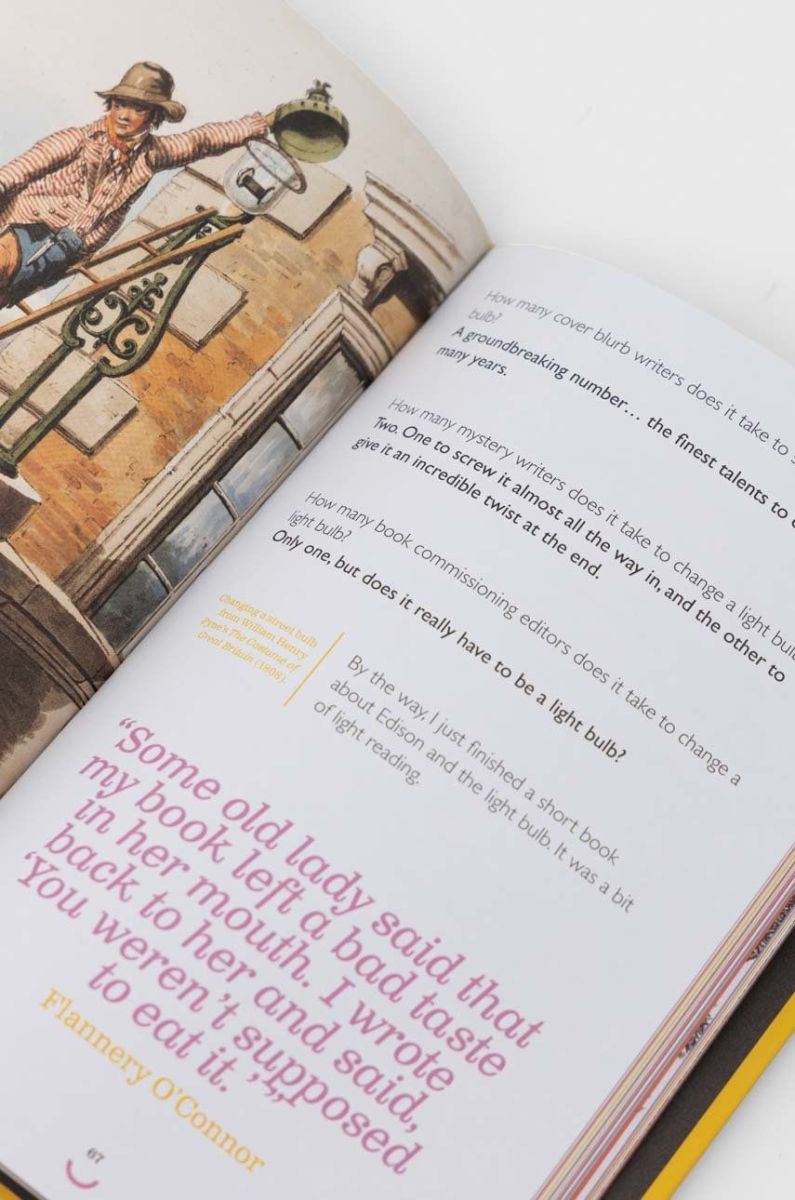 How many cover blurb writers does it take to
bulb?
A groundbreaking number… the finest talents to
many years.
How many mystery writers does it take to change a light bulb
Two. One to screw it almost all the way in, and the other to
give it an incredible twist at the end.
How many book commissioning editors does it take to change a
light bulb?
Only one, but does it really have to be a light bulb?
Changing a street bulb
from William Henry
Pyne's The Costume of
Great Britain (1808).
By the way, I just finished a short book
about Edison and the light bulb. It was a bit
of light reading.
“Some old lady said that
my book left a bad taste
in her mouth. I wrote
back to her and said,
‘You weren’t supposed
to eat it.’”
Flannery O’Connor
67